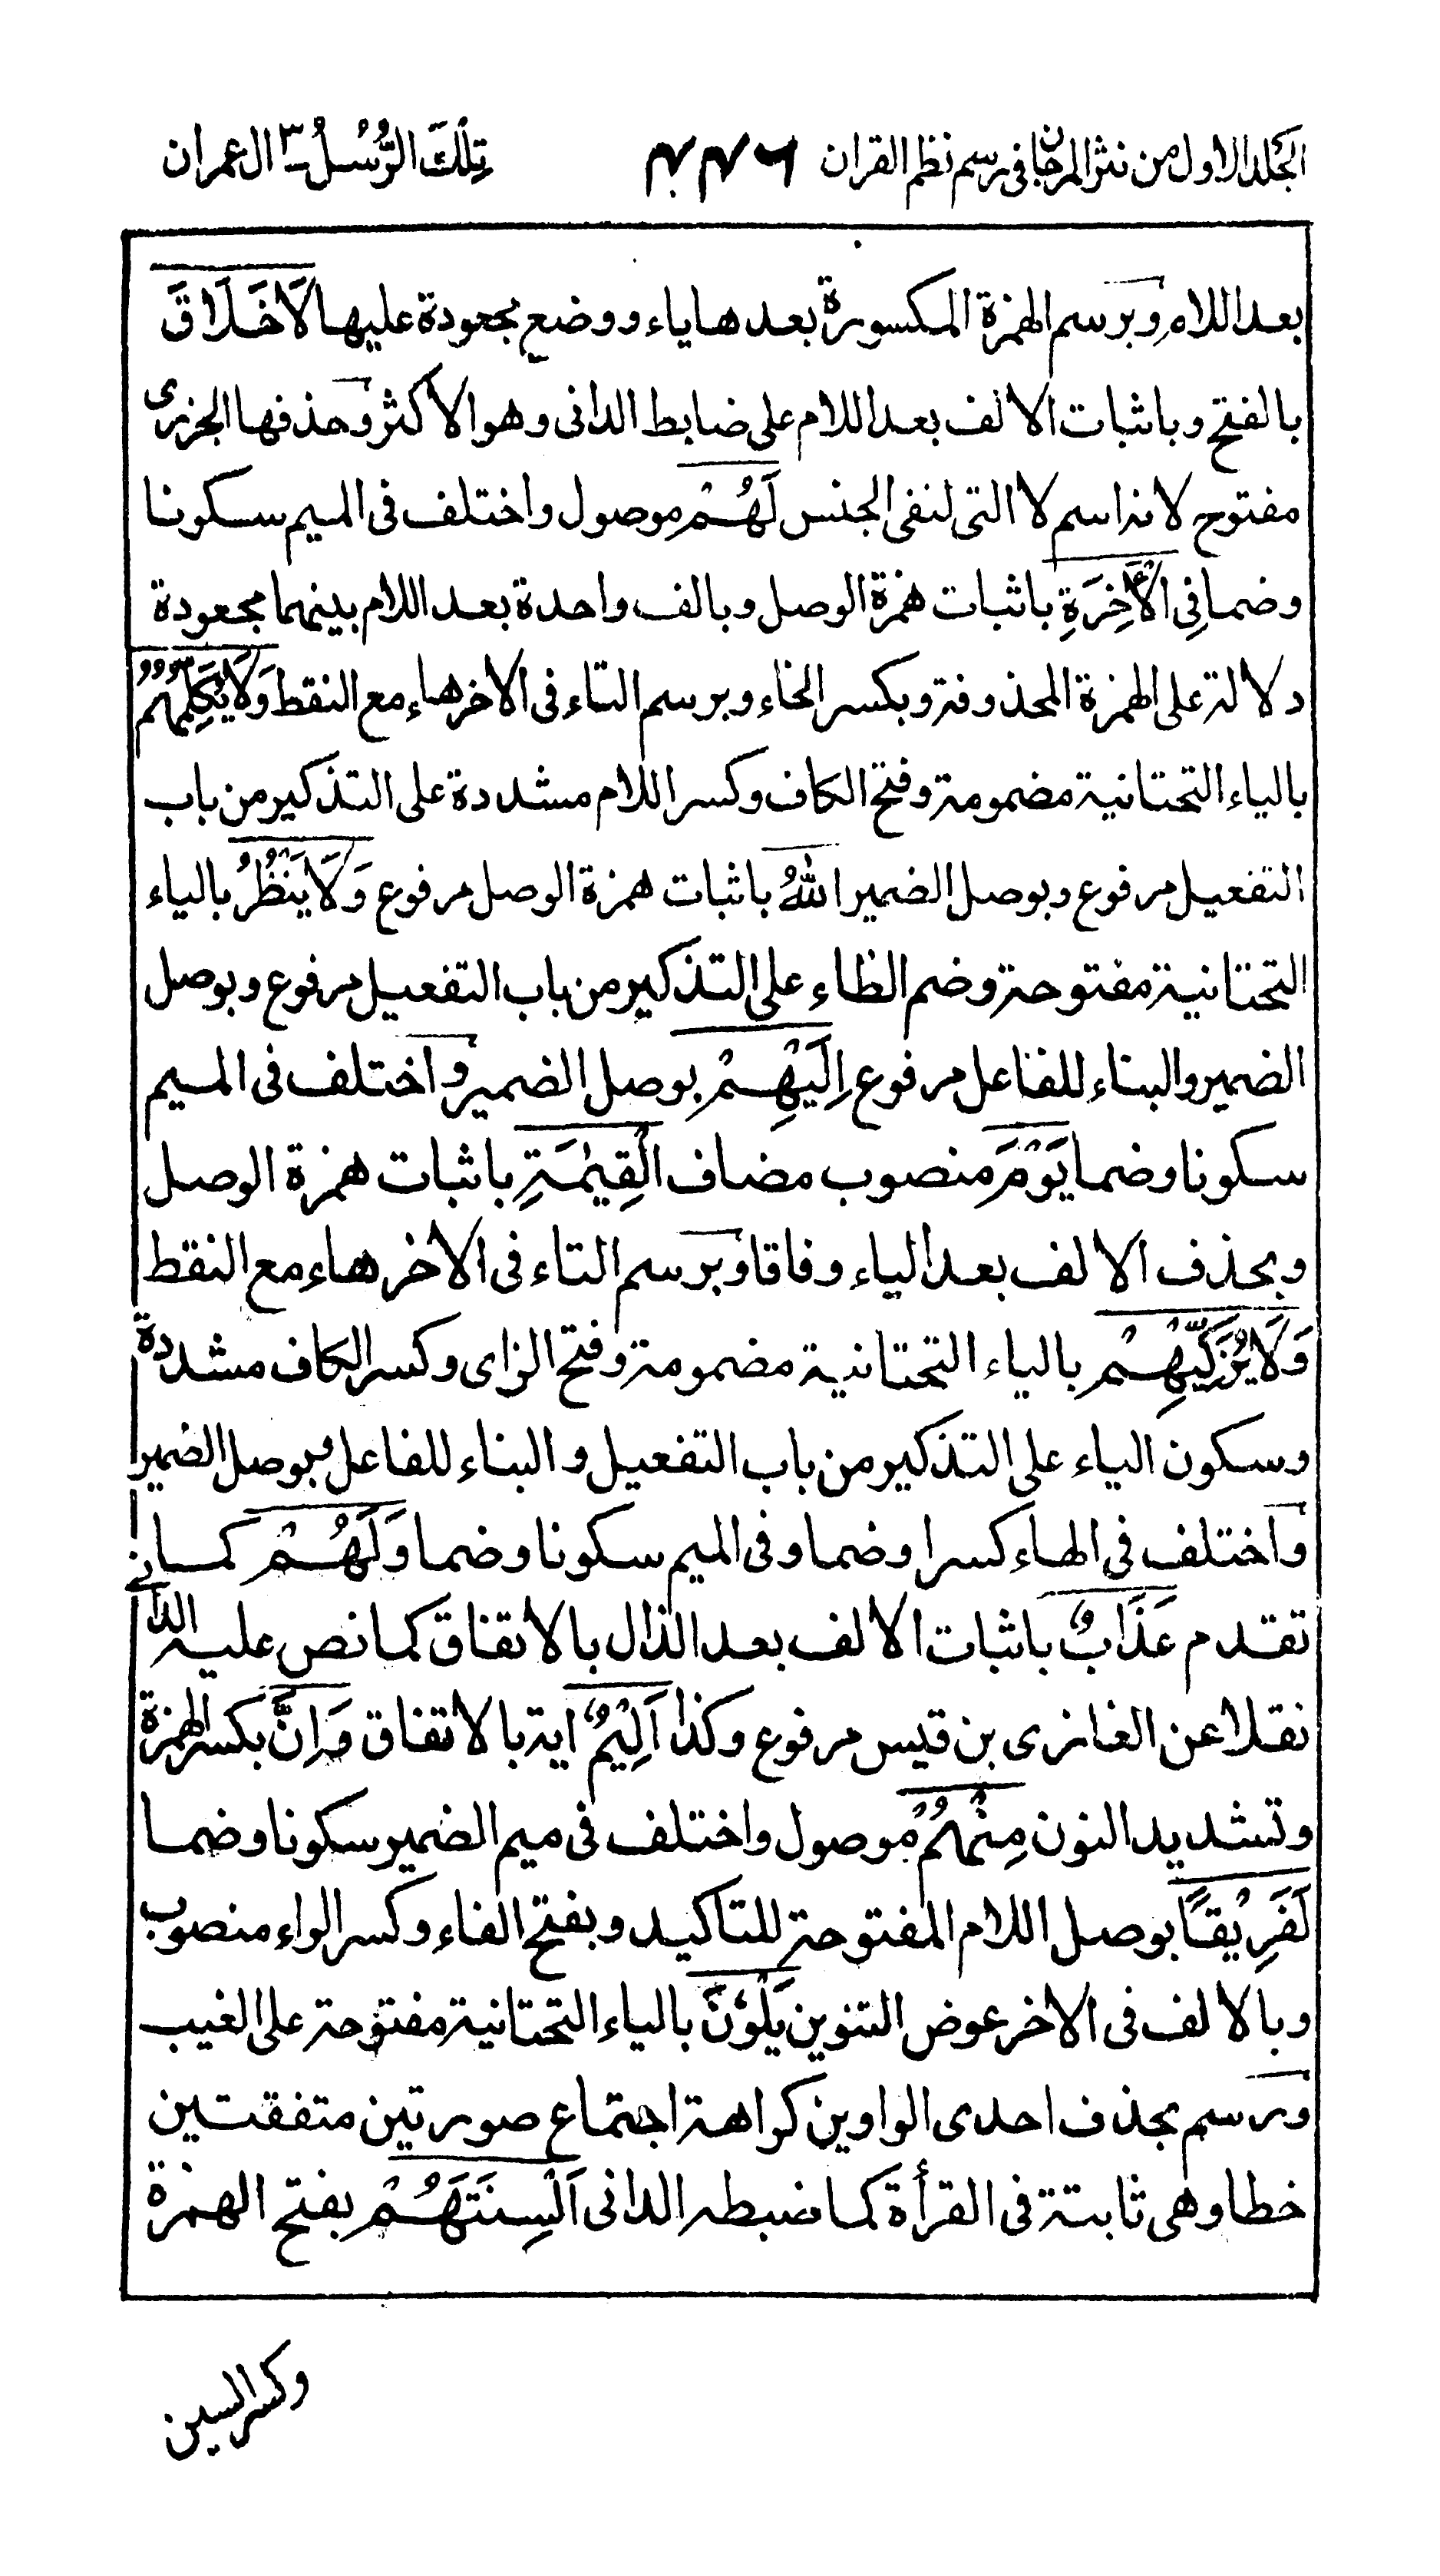 الجلد الاول من نثر المرجان فى رسم نظم القران ٤٣٦ تِلْكَ الرُّسُلُ ٣ ال عمران
بعد اللام وبرسم الهمزة المكسورة بعدها ياء ووضع مجعودة عليها لَا خَلَاقَ
بالفتح وباثبات الالف بعد اللام على ضابط الدانى وهو الاكثر وحذفها الجزرى
مفتوح لانه اسم لا التى لنفى الجنس لَهُمْ موصول واختلف فى الميم سكونا
وضما فِى الْاٰخِرَةِ باثبات همزة الوصل وبالف واحدة بعد اللام بينهما مجعودة
دلالة على الهمزة المحذوفة وبكسر الخاء وبرسم التاء فى الاخر هاء مع النقط وَلَا يُكَلِّمُهُمُ
بالياء التحتانية مضمومة وفتح الكاف وكسر اللام مشددة على التذكير من باب
التفعيل مرفوع وبوصل الضمير اللهُ باثبات همزة الوصل مرفوع وَلَا يَنْظُرُ بالياء
التحتانية مفتوحة وضم الظاء على التذكير من باب التفعيل مرفوع وبوصل
الضمير والبناء للفاعل مرفوع اِلَيْهِمْ بوصل الضمير واختلف فى الميم
سكونا وضما يَوْمَ منصوب مضاف الْقِيٰمَةِ باثبات همزة الوصل
وبحذف الالف بعد الياء وفاقا وبرسم التاء فى الاخر هاء مع النقط
وَلَا يُزَكِّيْهِمْ بالياء التحتانية مضمومة وفتح الزاى وكسر الكاف مشددة
وسكون الياء على التذكير من باب التفعيل والبناء للفاعل وبوصل الضمير
واختلف فى الهاء كسرا وضما وفى الميم سكونا وضما وَلَهُمْ كما
تقدم عَذَابٌ باثبات الالف بعد الذال بالاتفاق كما نص عليه الدانى
نقلا عن الغازى بن قيس مرفوع وكذا اَلِيْمٌ اية بالاتفاق وَاِنَّ بكسر الهمزة
وتشديد النون مِنْهُمْ موصول واختلف فى ميم الضمير سكونا وضما
لَفَرِيْقًا بوصل اللام المفتوحة للتاكيد وبفتح الفاء وكسر الراء منصوب
وبالالف فى الاخر عوض التنوين يَلْوٗنَ بالياء التحتانية مفتوحة على الغيب
ورسم بحذف احدى الواوين كراهة اجتماع صورتين متفقتين
خطا وهى ثابتة فى القرأة كما ضبطه الدانى اَلْسِنَتَهُمْ بفتح الهمزة
وكسر السين